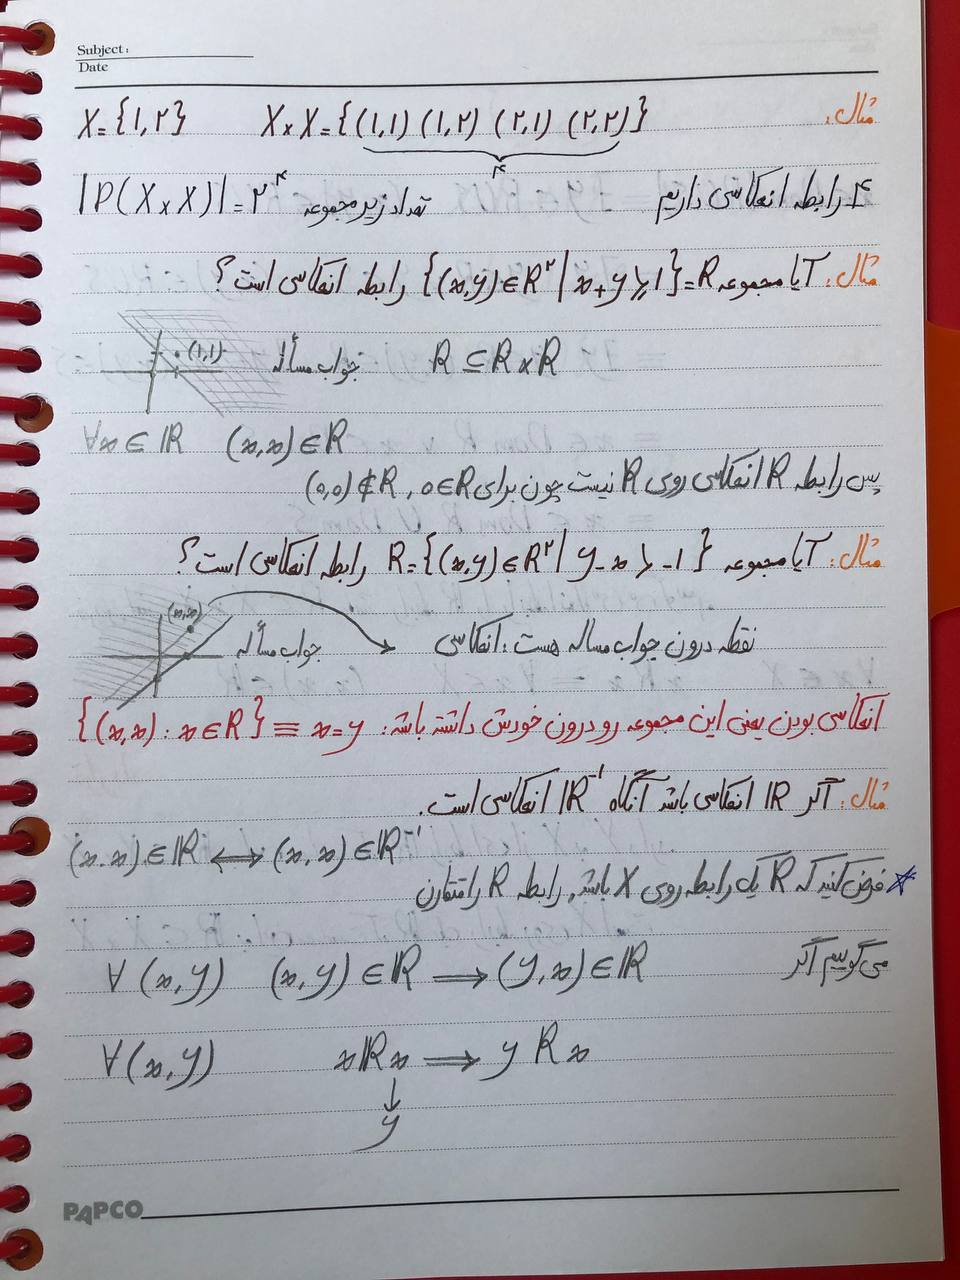 Subject:
Date
مثال: X={1,2} X×X={(1,1) (1,2) (2,1) (2,2)}
4
4 رابطه انعکاسی داریم تعداد زیرمجموعه |P(X×X)|=2^4
مثال: آیا مجموعه R={(x,y)∈R^2 | x+y≥1} رابطه انعکاسی است؟
R⊆R×R جواب مسأله (1,1)
∀x∈ℝ (x,x)∈R
پس رابطه R انعکاسی روی R نیست چون برای 0∈R , (0,0)∉R
مثال: آیا مجموعه R={(x,y)∈R^2 | y-x > -1} رابطه انعکاسی است؟
(x,x)
نقطه درون جواب مساله هست: انعکاسی جواب مسأله
انعکاسی بودن یعنی این مجموعه رو درون خودش داشته باشد: {(x,x) : x∈R} ≡ x=y
مثال: اگر ℝ انعکاسی باشد آنگاه ℝ^-1 انعکاسی است.
(x,x)∈ℝ ⟺ (x,x)∈ℝ^-1
* فرض کنید که R یک رابطه روی X باشد, رابطه R را متقارن
می‌گوییم اگر ∀(x,y) (x,y)∈ℝ ⟹ (y,x)∈ℝ
∀(x,y) xℝx ⟹ y R x
↓
y
PAPCO